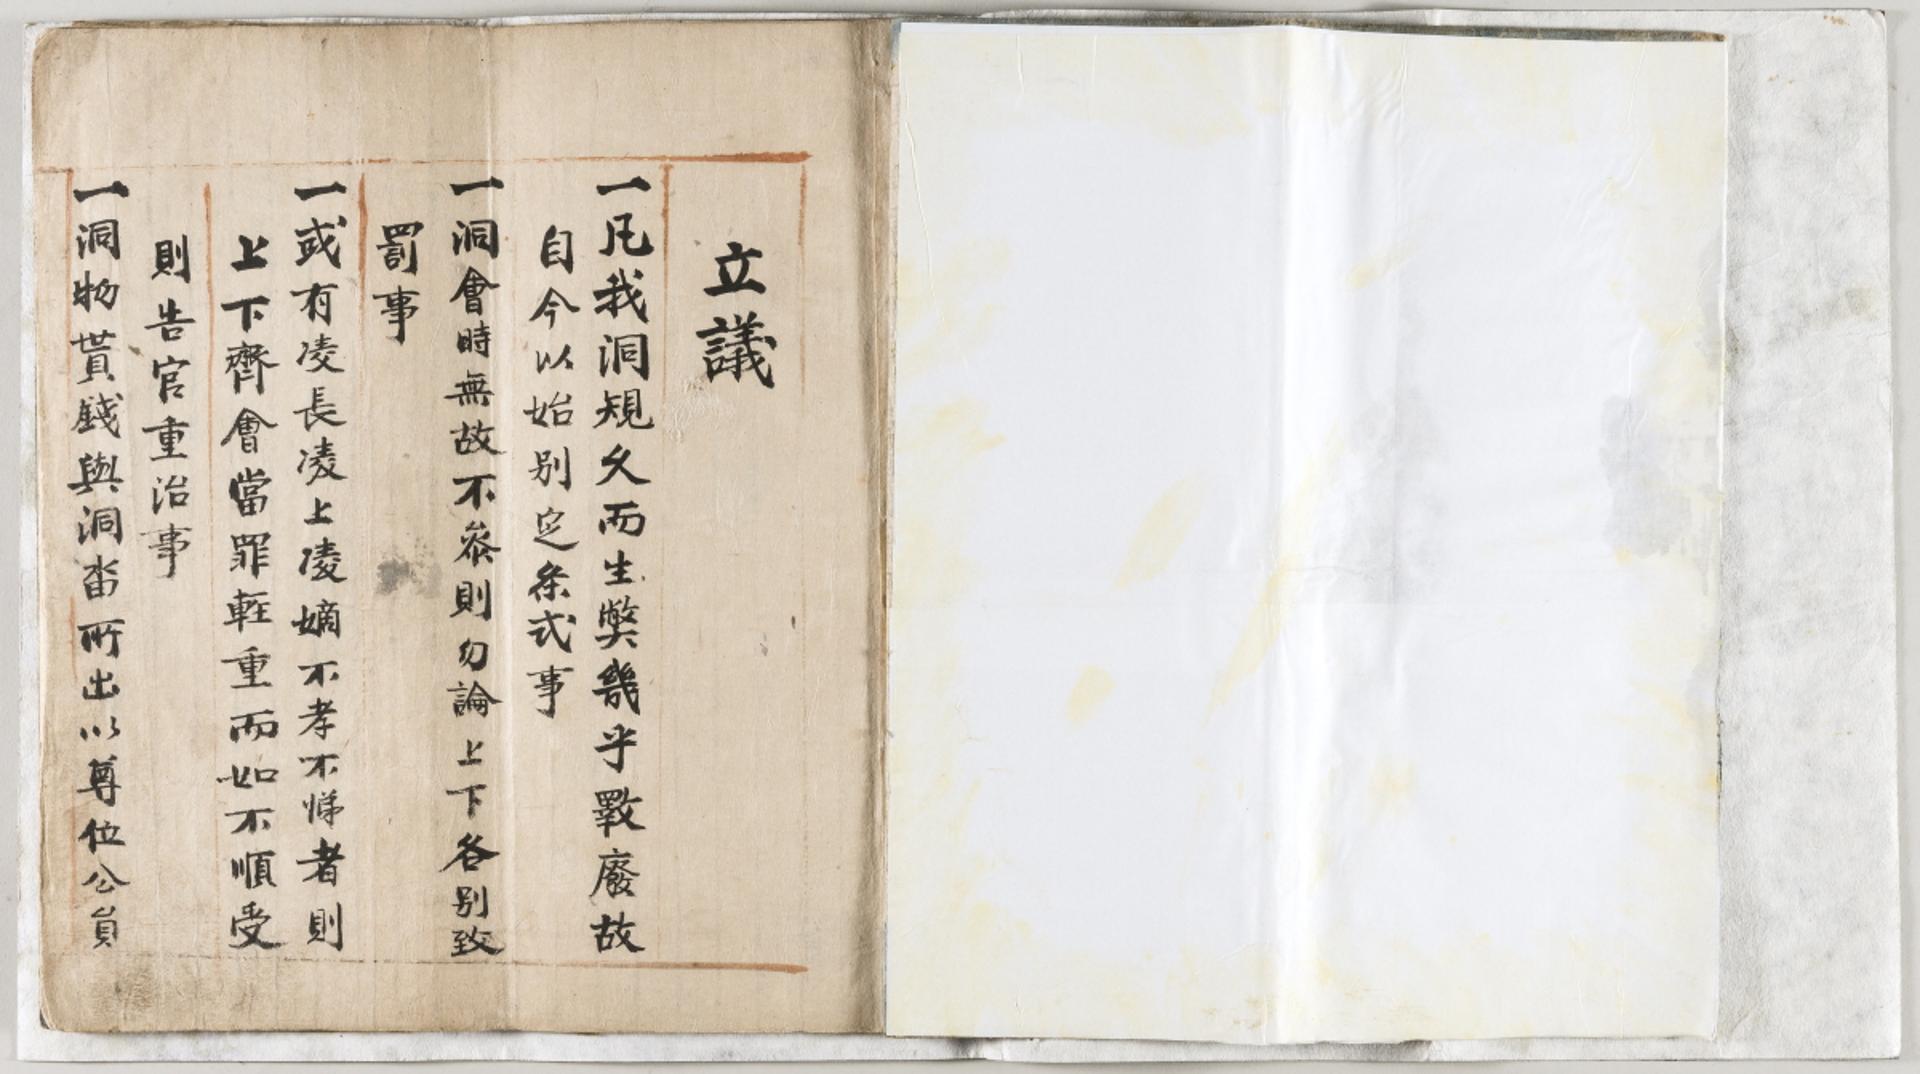 立議
一凡我洞規久而生弊幾乎斁廢故
自今以始別定条式事
一洞會時無故不叅則勿論上下各別致
罰事
一或有凌長凌上凌嫡不孝不悌者則
上下齊會當罪輊重而如不順受
則告官重治事
一洞物貰錢與洞畓所出以尊位公員